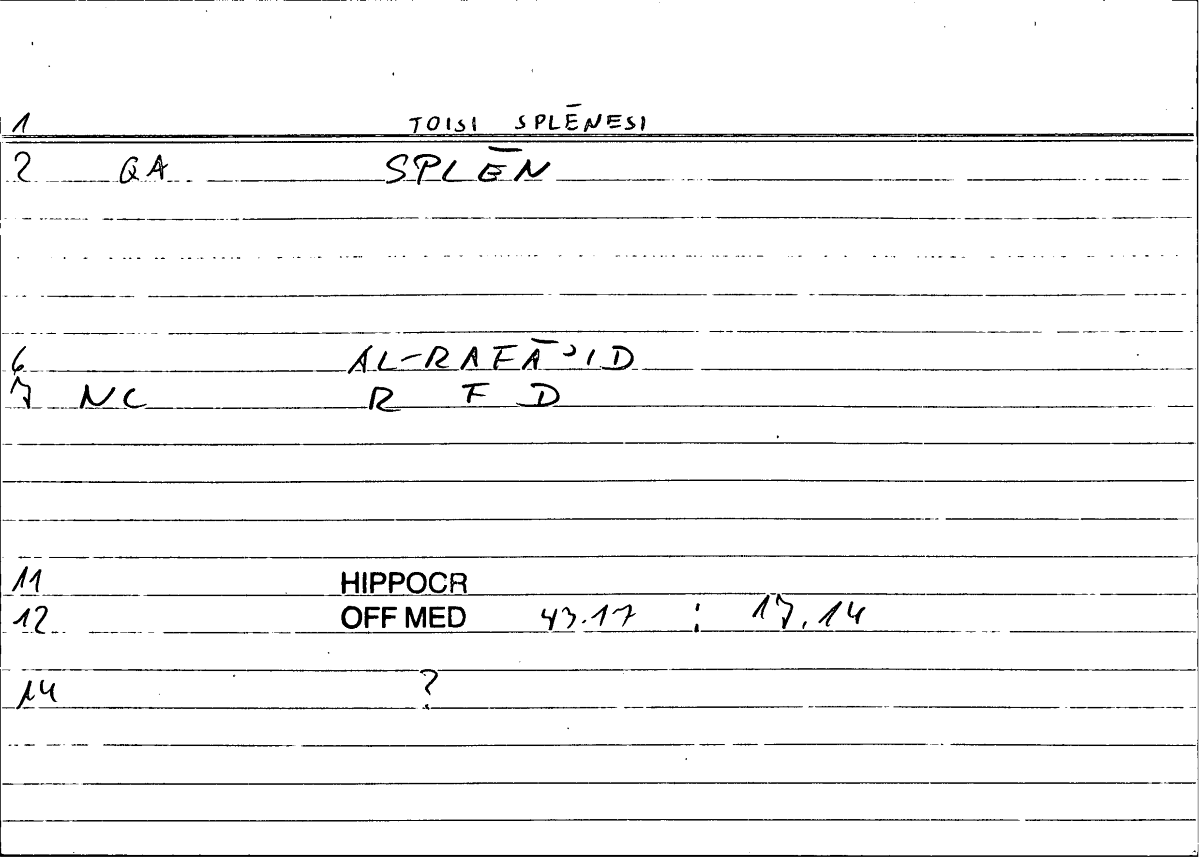 1 TOISI SPLĒNESI
2 QA SPLĒN
6 AL-RAFĀʾID
7 NC R F D
11 HIPPOCR
12 OFF MED 43.17 ; 17.14
14 ?